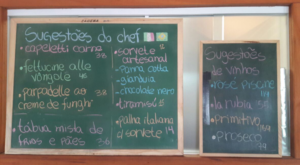 Sugestões do chef
• capeletti carne
• fettucine alle
vongole
• parpadelle ao
creme de funghi
• tábua mista de
frios e pães
• sorvete
artesanal
• panna cotta
• chocolate nero
• tiramissú
• palha italiana
c/ sorvete 14
Sugestões
de vinhos
• rosé piscine
• primitivo